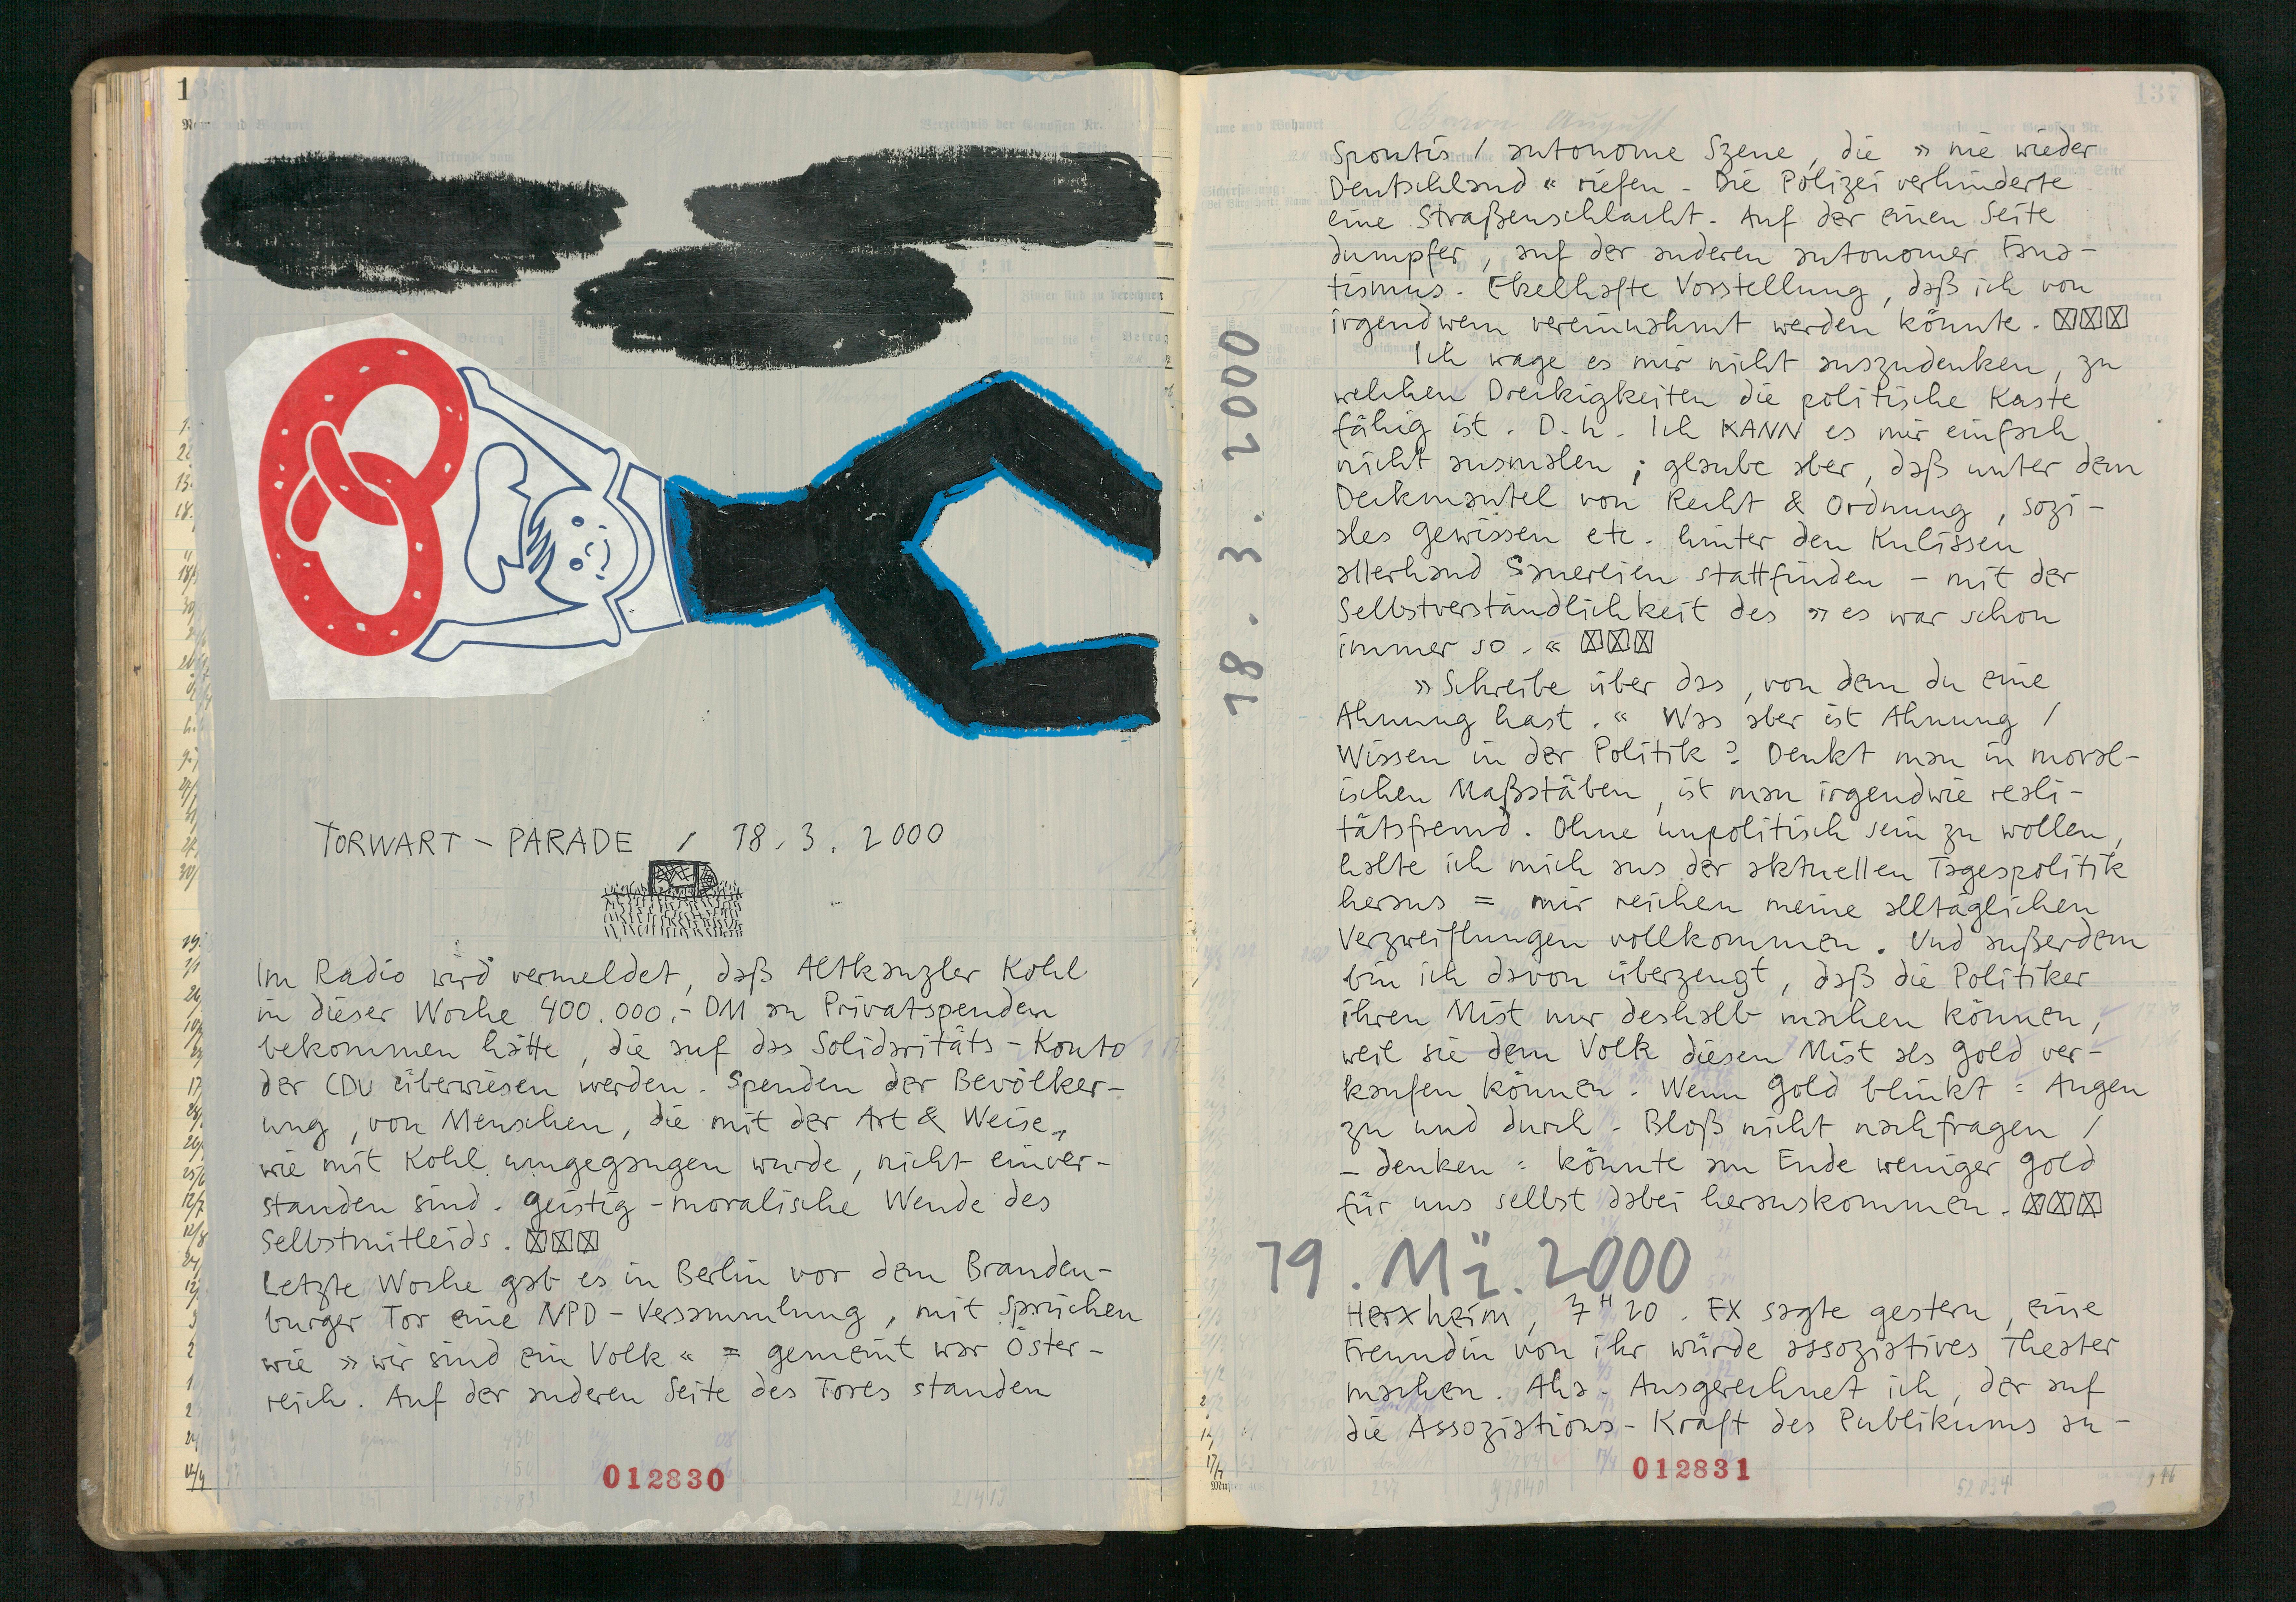 TORWART - PARADE / 18. 3. 2000
Im Radio wird vermeldet, daß Altkanzler Kohl
in dieser Woche 400.000,- DM an Privatspenden
bekommen hätte, die auf das Solidaritäts-Konto
der CDU überwiesen werden. Spenden der Bevölker-
ung, von Menschen, die mit der Art & Weise,
wie mit Kohl umgegangen wurde, nicht einver-
standen sind. Geistig-moralische Wende des
Selbstmitleids. ☒☒☒
Letzte Woche gab es in Berlin vor dem Branden-
burger Tor eine NPD-Versammlung, mit Sprüchen
wie »wir sind ein Volk« = gemeint war Öster-
reich. Auf der anderen Seite des Tores standen
012830
137
18. 3. 2000
Spontis / autonome Szene, die »nie wieder
Deutschland« riefen. Die Polizei verhinderte
eine Straßenschlacht. Auf der einen Seite
dumpfer, auf der anderen autonomer Fana-
tismus. Ekelhafte Vorstellung, daß ich von
irgendwem vereinnahmt werden könnte. ☒☒☒
Ich wage es mir nicht auszudenken, zu
welchen Dreckigkeiten die politische Kaste
fähig ist. D.h. Ich KANN es mir einfach
nicht ausmalen; glaube aber, daß unter dem
Deckmantel von Recht & Ordnung, sozi-
ales Gewissen etc. hinter den Kulissen
allerhand Sauereien stattfinden - mit der
Selbstverständlichkeit des »es war schon
immer so.« ☒☒☒
»Schreibe über das, von dem du eine
Ahnung hast.« Was aber ist Ahnung /
Wissen in der Politik? Denkt man in moral-
ischen Maßstäben, ist man irgendwie reali-
tätsfremd. Ohne unpolitisch sein zu wollen,
halte ich mich aus der aktuellen Tagespolitik
heraus = mir reichen meine alltäglichen
Verzweiflungen vollkommen. Und außerdem
bin ich davon überzeugt, daß die Politiker
ihren Mist nur deshalb machen können,
weil sie dem Volk diesen Mist als Gold ver-
kaufen können. Wenn Gold blinkt = Augen
zu und durch. Bloß nicht nachfragen /
-denken = könnte am Ende weniger Gold
für uns selbst dabei herauskommen. ☒☒☒
19. Mä. 2000
Herxheim, 7 H 20. EX sagte gestern, eine
Freundin von ihr würde assoziatives Theater
machen. Aha. Ausgerechnet ich, der auf
die Assoziations-Kraft des Publikums an-
012831